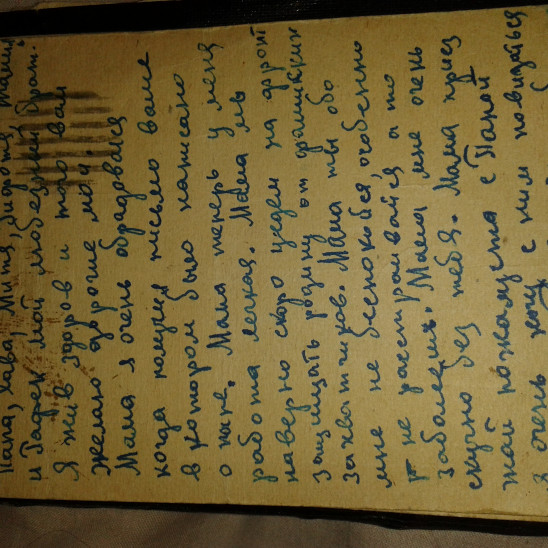 Папа, Клава, Митя, Зидота, Тамия
и Тафек мой любезный брат.
Я жив здоров и того вам
желаю дороже мои.
Мама я очень обрадовался
когда получил письмо ваше
в котором было написано
о папе. Мама теперь у меня
работа легкая. Мама мы
наверно скоро уедем на фронт
защищать родину от фашистких
захватчиков. Мама ты обо
мне не беспокойся, особенно
не расстраивайся а то
заболеешь. Мама мне очень
скучно без тебя. Мама приез
жай пожалуста с Папой
я очень хочу с ним повидаться